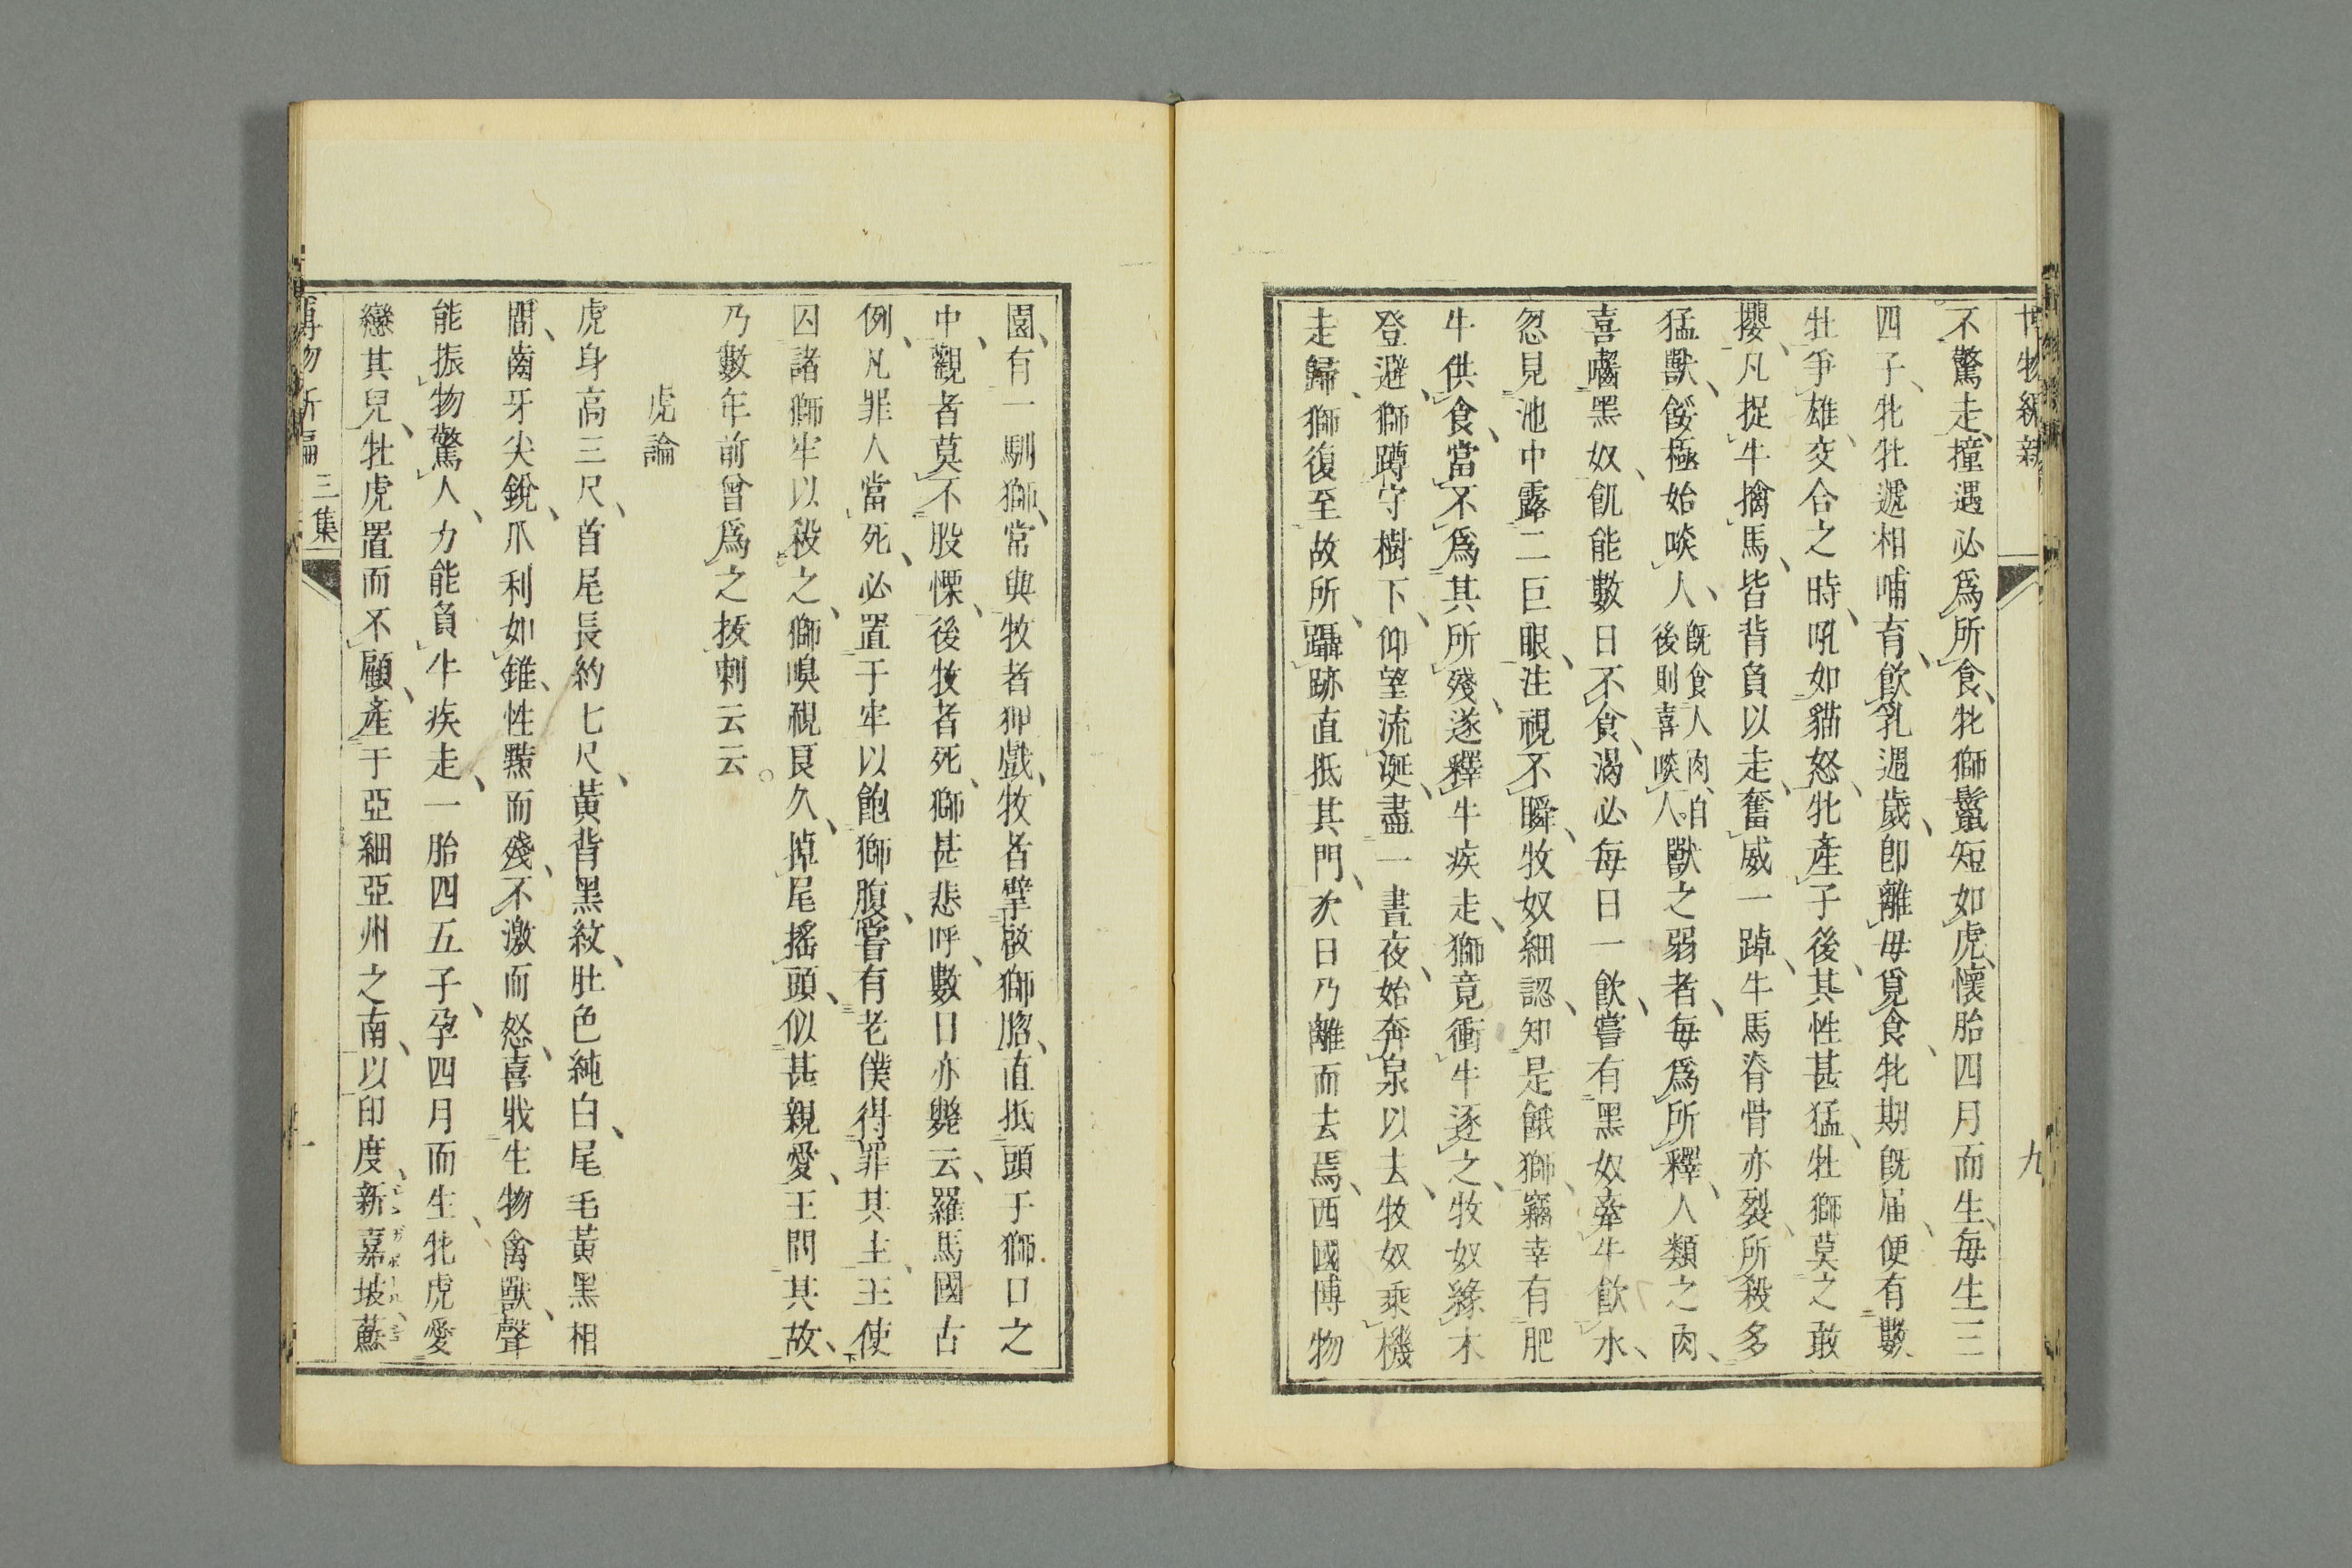 不驚走、撞遇必爲所食、牝獅鬣短如虎、懷胎四月而生、每生三
四子、牝牡遞相哺育、飮乳週歲、卽離母覓食、牝期旣届、便有數
牡爭雄、交合之時、吼如貓怒、牝產子後、其性甚猛、牡獅莫之敢
攖、凡捉牛擒馬、皆背負以走、奮威一踔、牛馬脊骨亦裂、所殺多
猛獸、餒極始啖人、旣食人肉、後則喜啖人。白獸之弱者、每爲所釋、人類之肉、
喜嚙黑奴、飢能數日不食、渴必每日一飮、嘗有黑奴牽牛飮水、
忽見池中露二巨眼、注視不瞬、牧奴細認、知是餓獅、竊幸有肥
牛供食、當不爲其所殘、遂釋牛疾走、獅竟衝牛逐之、牧奴緣木
登避、獅蹲守樹下、仰望流涎、盡一晝夜、始奔泉以去、牧奴乘機
走歸、獅復至故所、躡跡直抵其門、次日乃離而去焉、西國博物
九
園、有一馴獅、常與牧者狎戲、牧者擘啟獅腭、直抵頭于獅口之
中、觀者莫不股慄、後牧者死、獅甚悲呼、數日亦斃云、羅馬國古
例、凡罪人當死、必置于牢以飽獅腹、嘗有老僕得罪其主、主使
囚諸獅牢以殺之、獅嗅視良久、掉尾搖頭、似甚親愛、王問其故、
乃數年前曾爲之拔刺云云。
虎論
虎身高三尺、首尾長約七尺、黃背黑紋、肚色純白、尾毛黃黑相
間、齒牙尖銳、爪利如錐、性黠而殘、不激而怒、喜戕生物禽獸、聲
能振物驚人、力能負牛疾走、一胎四五子、孕四月而生、牝虎愛
戀其兒、牡虎置而不顧、產于亞細亞州之南、以印度、新嘉坡、蘇
三集